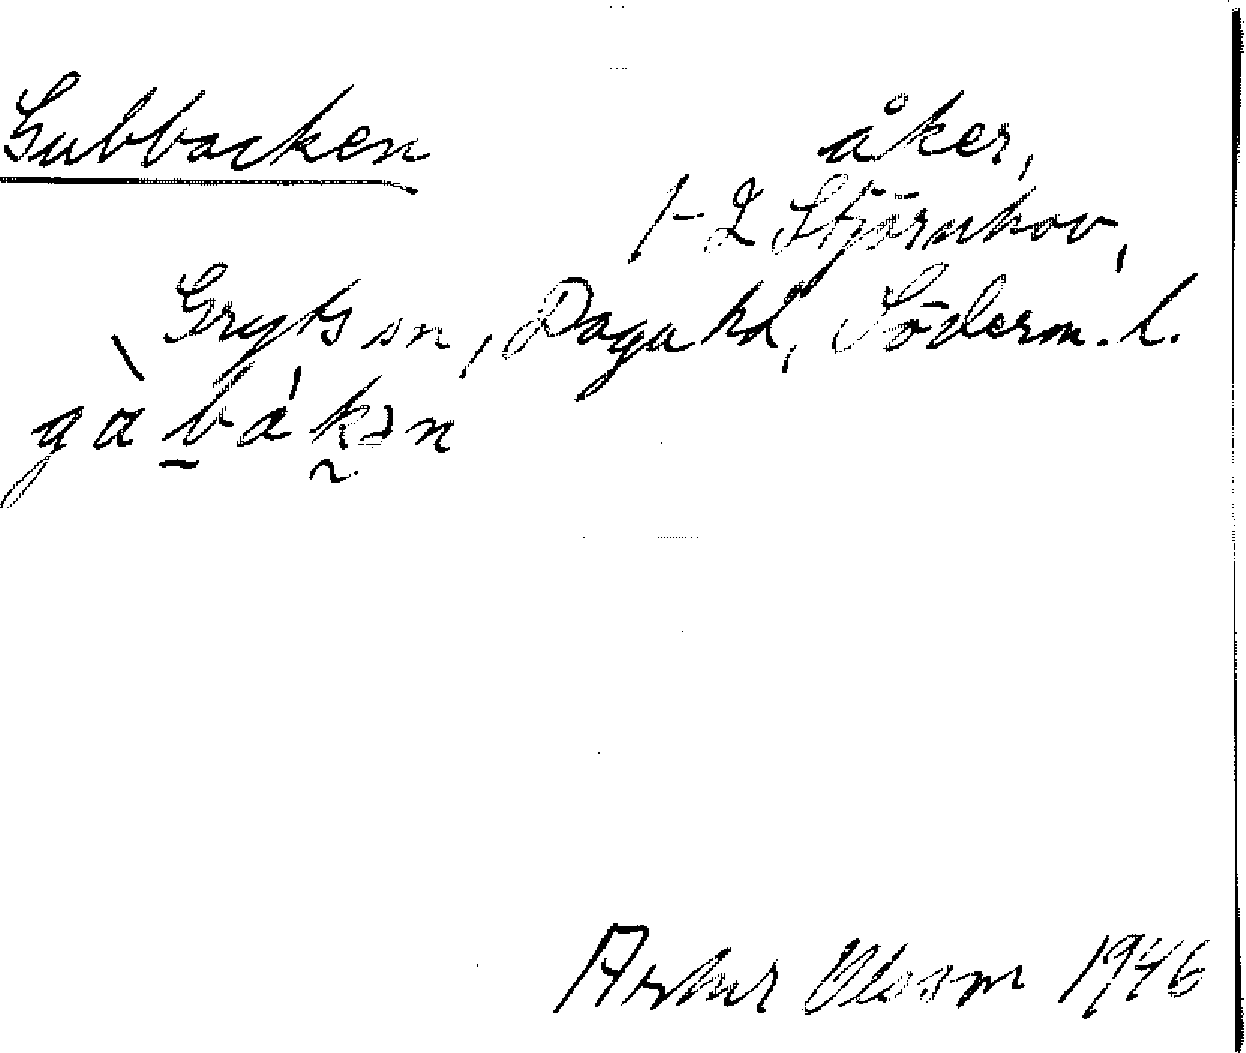 Gubbacken åker,
1-2 Stjärnhov,
Gryts sn, Daga hd, Söderm. l.
gàbákən
Arthur Olsson 1946